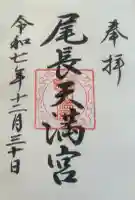 奉拝
尾長天満宮
令和七年十二月三十日